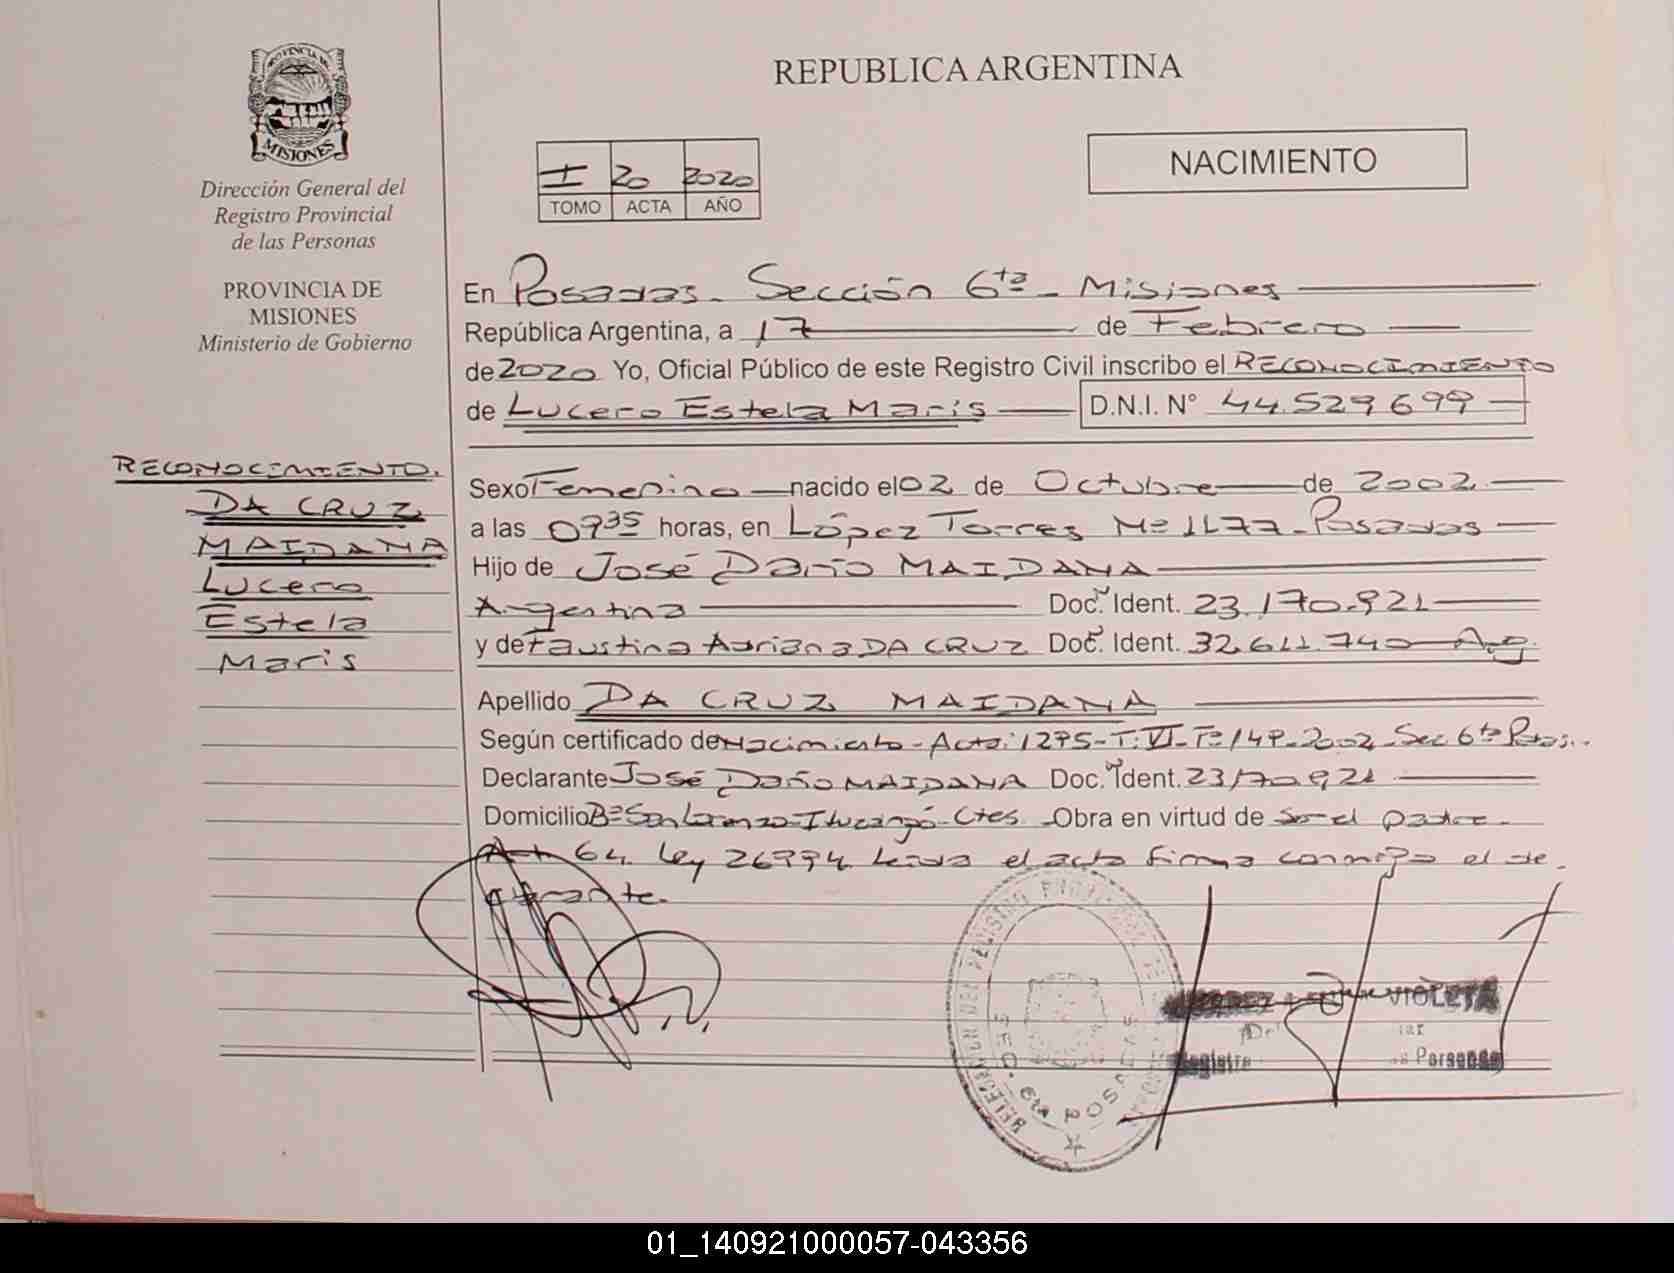 PROVINCIA DE
MISIONES
Dirección General del
Registro Provincial
de las Personas
PROVINCIA DE
MISIONES
Ministerio de Gobierno
REPUBLICA ARGENTINA
I 20 2020
TOMO ACTA AÑO
NACIMIENTO
En Posadas - Sección 6ta - Misiones
República Argentina, a 17 de Febrero
de 2020 Yo, Oficial Público de este Registro Civil inscribo el RECONOCIMIENTO
de Lucero Estela Maris D.N.I. N° 44.529.699
RECONOCIMIENTO.
DA CRUZ
MAIDANA
Lucero
Estela
Maris
Sexo Femenino nacido el 02 de Octubre de 2002
a las 0935 horas, en López Torres Nº 1177 - Posadas
Hijo de José Darío MAIDANA
Argentina Doc. Ident. 23.170.921
y de Faustina Adriana DA CRUZ Doc. Ident. 32.611.740 - Arg.
Apellido DA CRUZ MAIDANA
Según certificado de Nacimiento - Acta: 1295 - T: VI - Fº 149 - 2002 - Sec 6ta Pdas.
Declarante José Darío MAIDANA Doc. Ident. 23.170.921
Domicilio Bº San Lorenzo - Ituzaingó - Ctes. Obra en virtud de ser el padre.
Art. 64 Ley 26994 Leída el acta firma conmigo el de
clarante.
DELEGACION DEL REGISTRO PROVINCIAL DE
SEC. 6ta POSADAS
VIOLETA
Personas
01_140921000057-043356